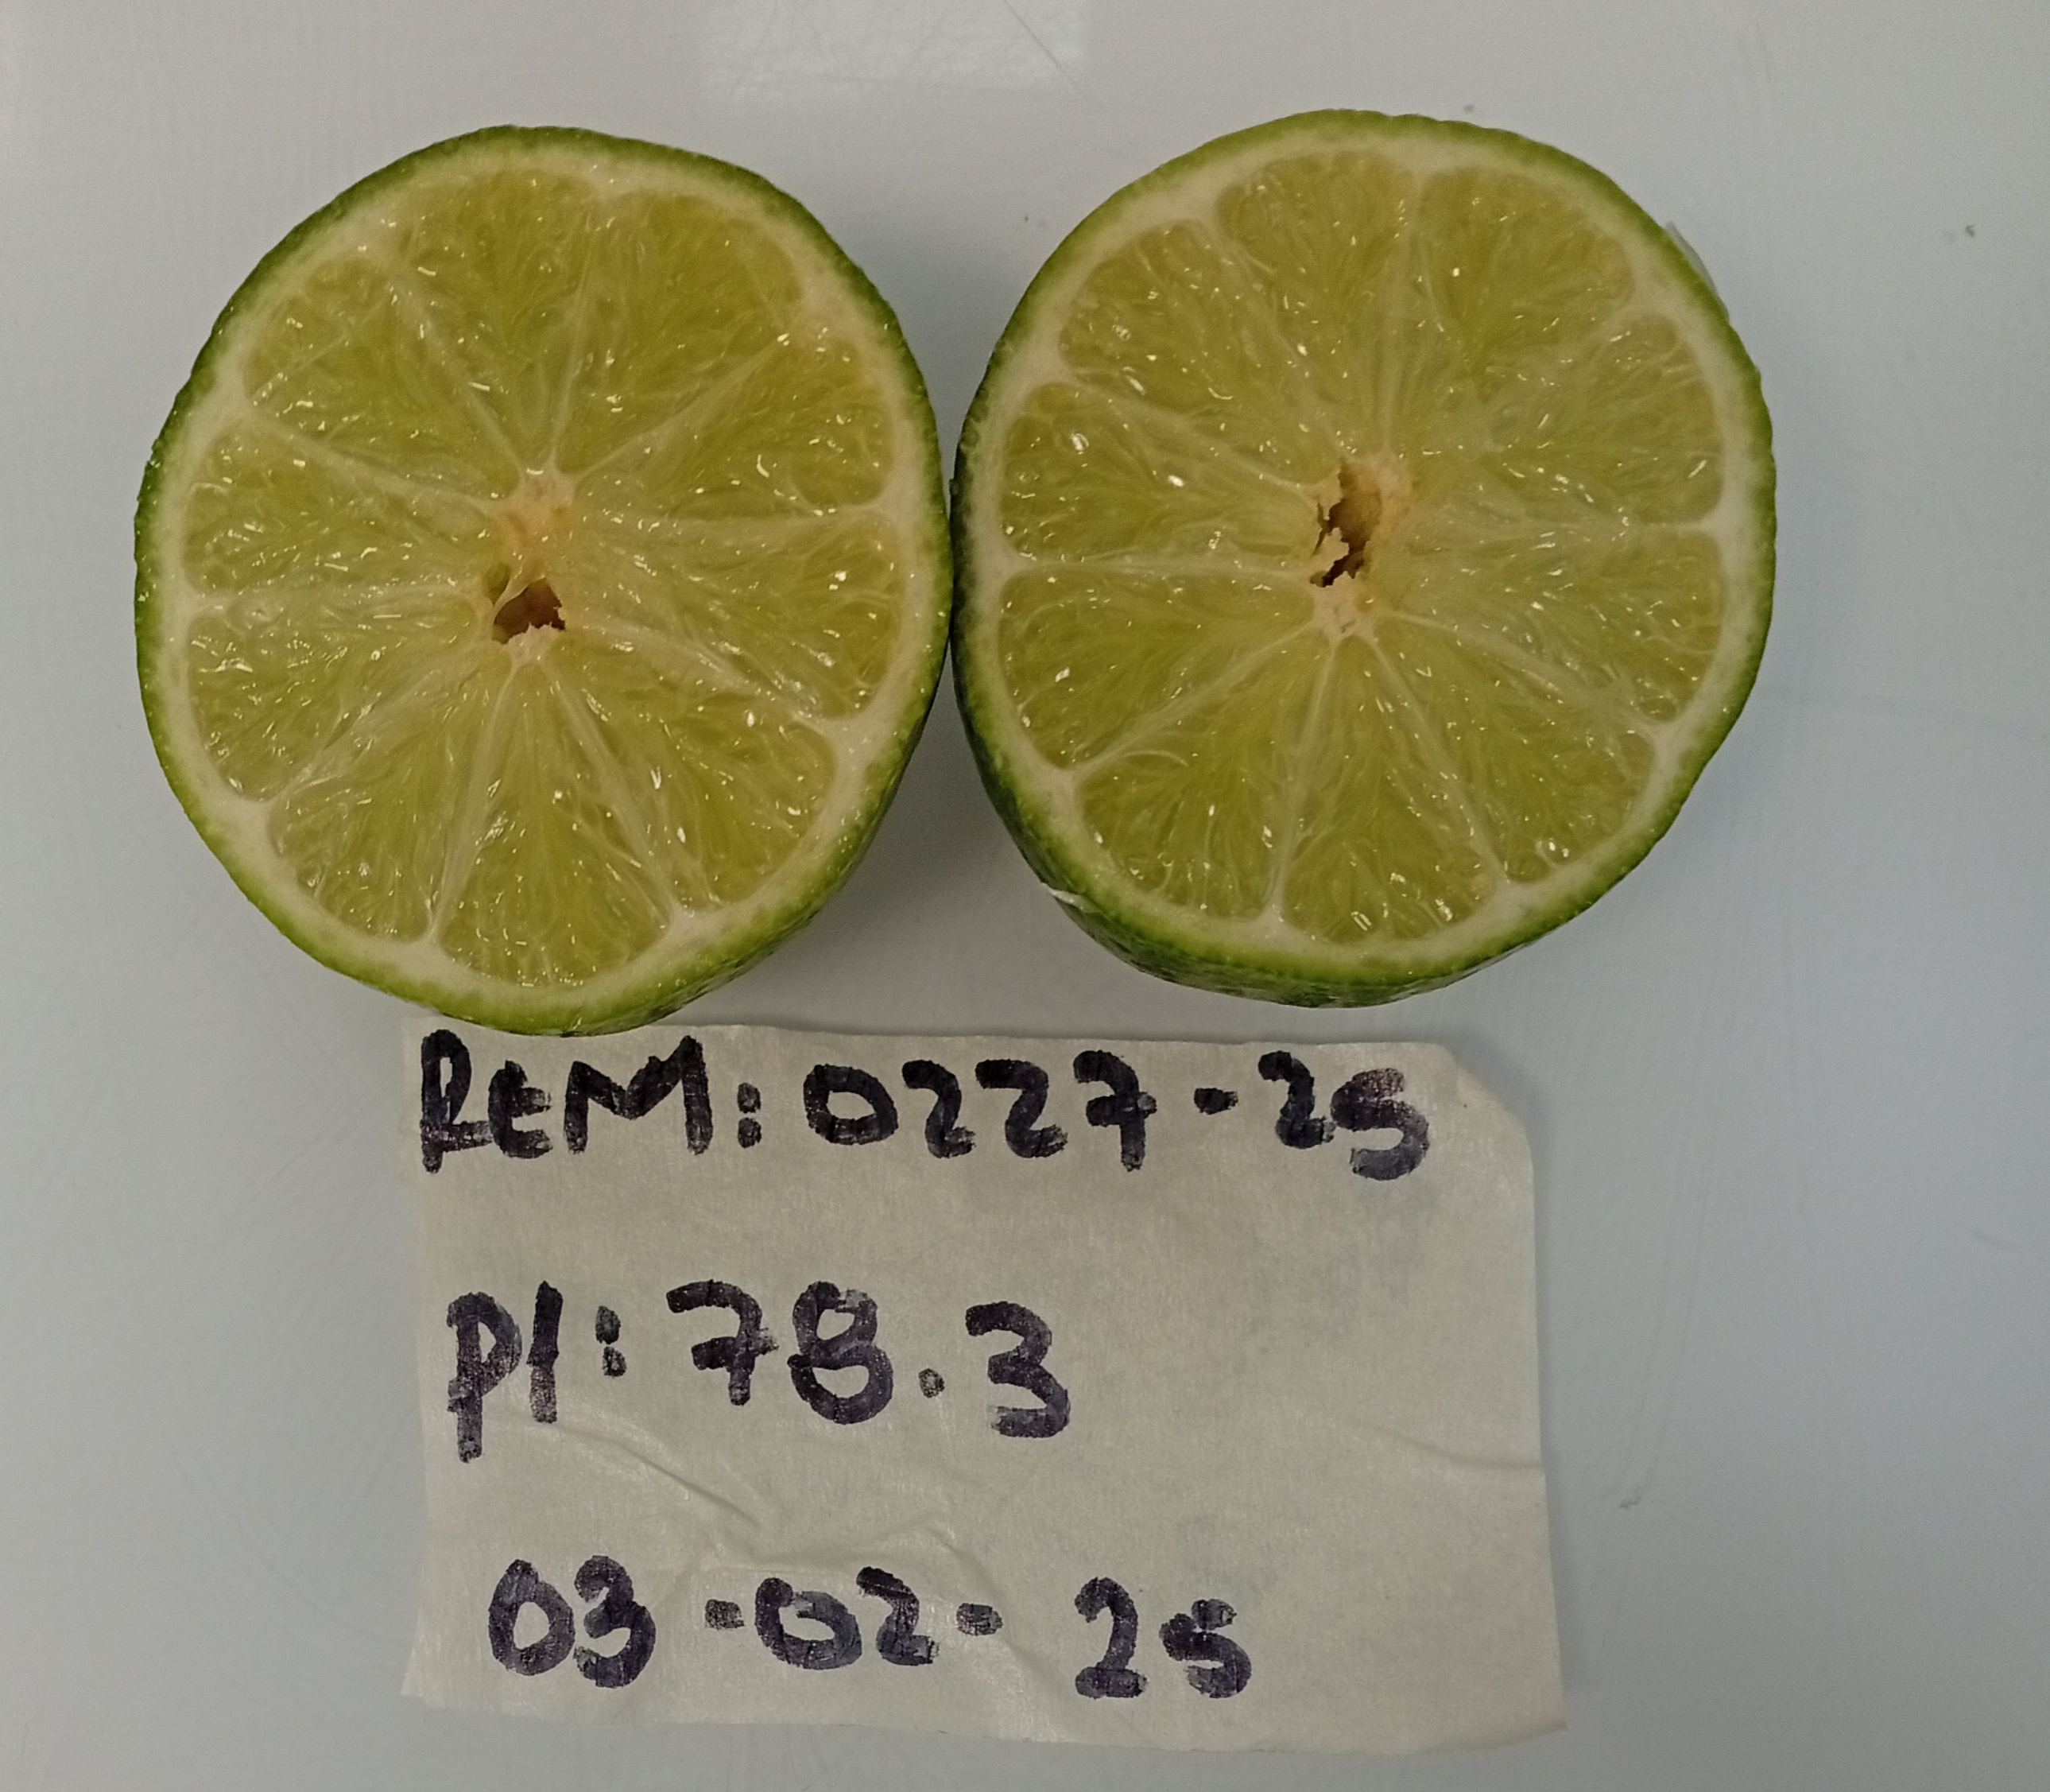 REM: 0227-25
PI: 78.3
03-02-25